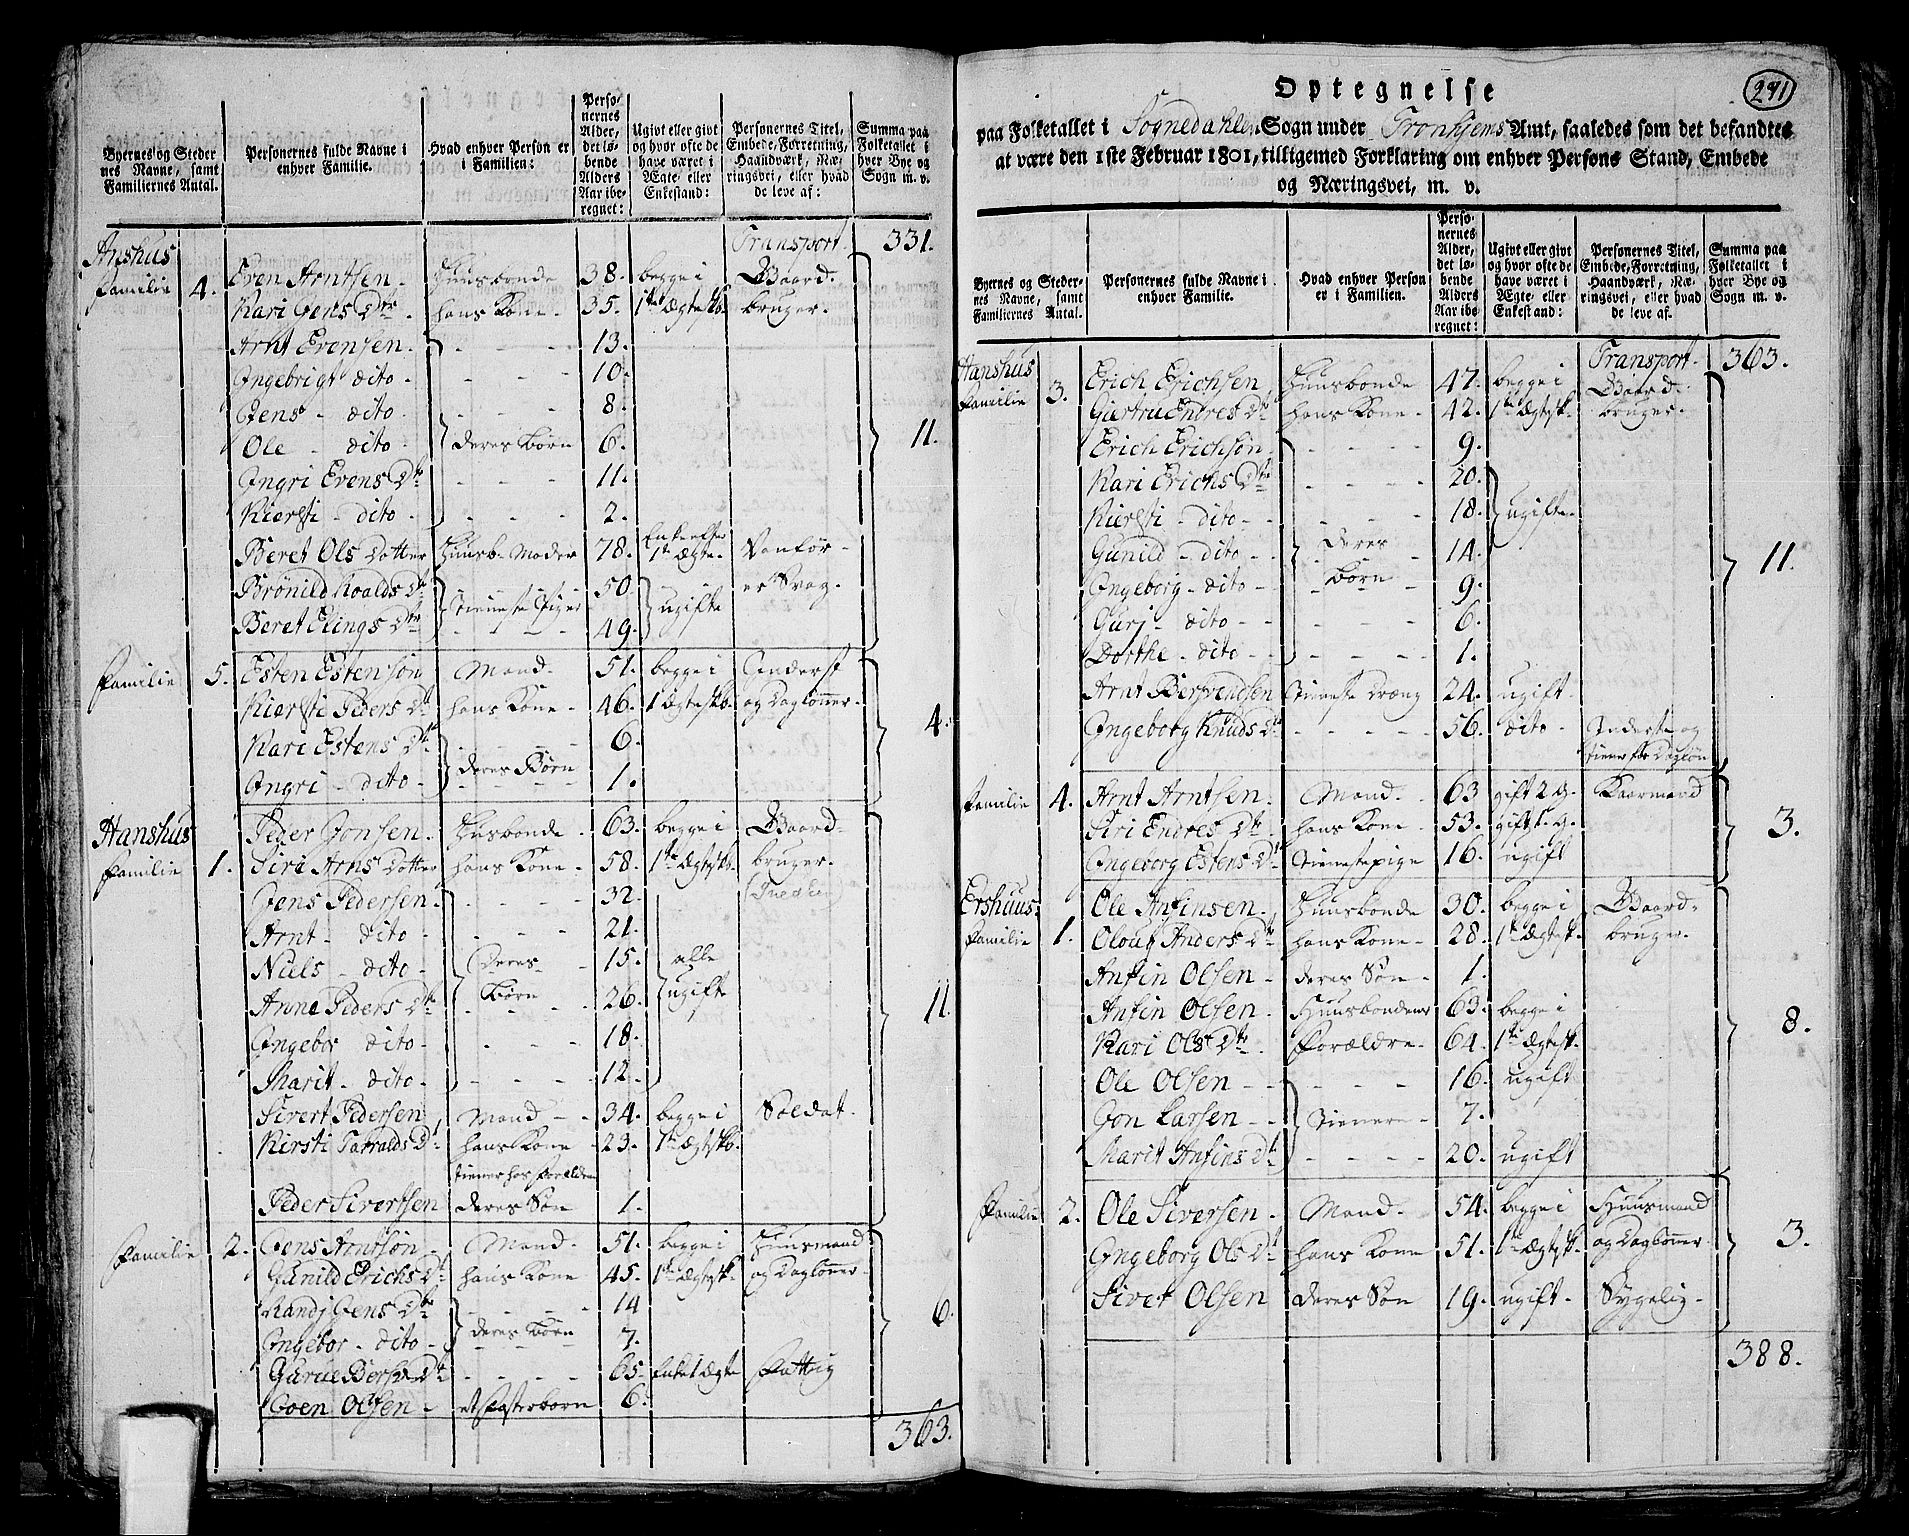 Byernes og Steder nes Navne, samt Familiernes Antal. Personernes fulde Navne i enhver Familie. Hvad enhver Person er i Familien: Personernes Alder, det løbende Alders Aar iberegnet: Ugivt eller givt og hvor ofte de have været i Ægte- eller Enkestand: Personernes Titel, Embede, Forretning, Haandværk, Næringsvei, eller hvad de leve af: Summa paa Folketallet i hver Bye og Sogn m. v.
Transport. 331.
Anshus
Familie 4. Even Arntsen Huusbonde 38. begge i Gaard-
Kari Jens Dtr hans Kone 35. 1ste Ægtesk. bruger.
Arnt Evensen 13.
Ingebrigt dito 10.
Jens dito 8.
Ole dito deres Børn 6. 11.
Ingri Evens Dtr 11.
Kiersti dito 2.
Beret Ols Dotter Huusb. Moder 78. Enke efter 1ste Ægte Vanfør-
Brønild Roalds Dtr tieneste Piger 50. ugifte er Svag.
Beret Elings Dtr 49.
Familie 5. Esten Estensøn Mand 51. begge i Inderst
Kiersti Peders Dtr hans Kone 46. 1 Ægtesk. og Daglønner.
Kari Estens Dtr 6. 4.
Ingri dito deres Børn 1.
Hanshus
Peder Jonsen Husbonde 63. begge i Gaard-
Familie 1. Siri Arns Dotter hans Kone 58. 1ste Ægtesk. bruger.
Jens Pedersen 32.
Arnt dito 21.
Niels dito Deres 15. alle
Anne Peders Dtr Børn 26. ugifte 11.
Ingebor dito 18.
Marit dito 12.
Sivert Pedersen Mand 34. begge i Soldat.
Kirsti Tarralds Dtr hans Kone 23. 1ste Ægtesk.
tiener hos Forældre
Peder Sivertsen deres Søn 1.
Familie 2. Jens Arntsøn Mand 51. begge i Huusmand
Gunild Erichs Dtr hans Kone 45. 1ste Ægtesk. og Daglønner.
Randj Jens Dtr 14 6.
Ingebor dito deres Børn 7.
Gurue Bersv. Dtr 65. Enke 1 Ægte Fattig
Goen Olsen et Fosterbarn 6.
363.
291
Optegnelse
paa Folketallet i Sognedahlen Sogn under Tronhjems Amt, saaledes som det befandtes
at være den 1ste Februar 1801, tilligemed Forklaring om enhver Persons Stand, Embede
og Næringsvei, m. v.
Byernes og Steder- nes Navne, samt Familiernes Antal. Personernes fulde Navne i enhver Familie. Hvad enhver Person er i Familien. Personernes Alder, det løbende Alders Aar iberegnet: Ugivt eller givt og hvor ofte de have været i Ægte- eller Enkestand: Personernes Titel, Embede, Forretning, Haandværk, Næringsvei, eller hvad de leve af. Summa paa Folketallet i hver Bye og Sogn m. v.
Transport. 363.
Hanshus
Familie 3. Erich Erichsen Huusbonde 47. begge i Gaard-
Giertru Endres Dtr hans Kone 42. 1ste Ægtesk. bruger.
Erich Erichsøn 9.
Kari Erichs Dtr 20.
Kiersti dito 18. ugifte
Gunild dito Deres 14.
Ingeborg dito Børn 9. 11.
Guri dito 6.
Dorthe dito 1.
Arnt Bersvendsen tieneste Dreng 24. ugift
Ingeborg Knuds Dtr 56. dito Inderste og
tiener for Dagløn
Familie 4. Arnt Arntsen Mand 63 gift 2 G. Kaarmand
Siri Endres Dtr hans Kone 53. gift 1 G. 3.
Ingeborg Estens Dtr tienestepige 16. ugift
Ershuus
Ole Anfinsen Huusbonde 30. begge i Gaard-
Familie 1. Olouf Anders Dtr hans Kone 28. 1ste Ægtesk. bruger.
Anfin Olsen deres Søn 1.
Anfin Olsen Huusbondens 63. begge i 8.
Kari Ols Dtr Forældre 64. 1ste Ægtesk.
Ole Olsen 16. ugift
Jon Larsen Tienere 7.
Marit Anfins Dtr 20. ugift
Familie 2. Ole Siversen Mand 54. begge i Huusmand
Ingeborg Ols Dtr hans Kone 51. 1ste Ægtesk. og Daglønner. 3.
Siver Olsen deres Søn 19. ugift Sygelig
388.